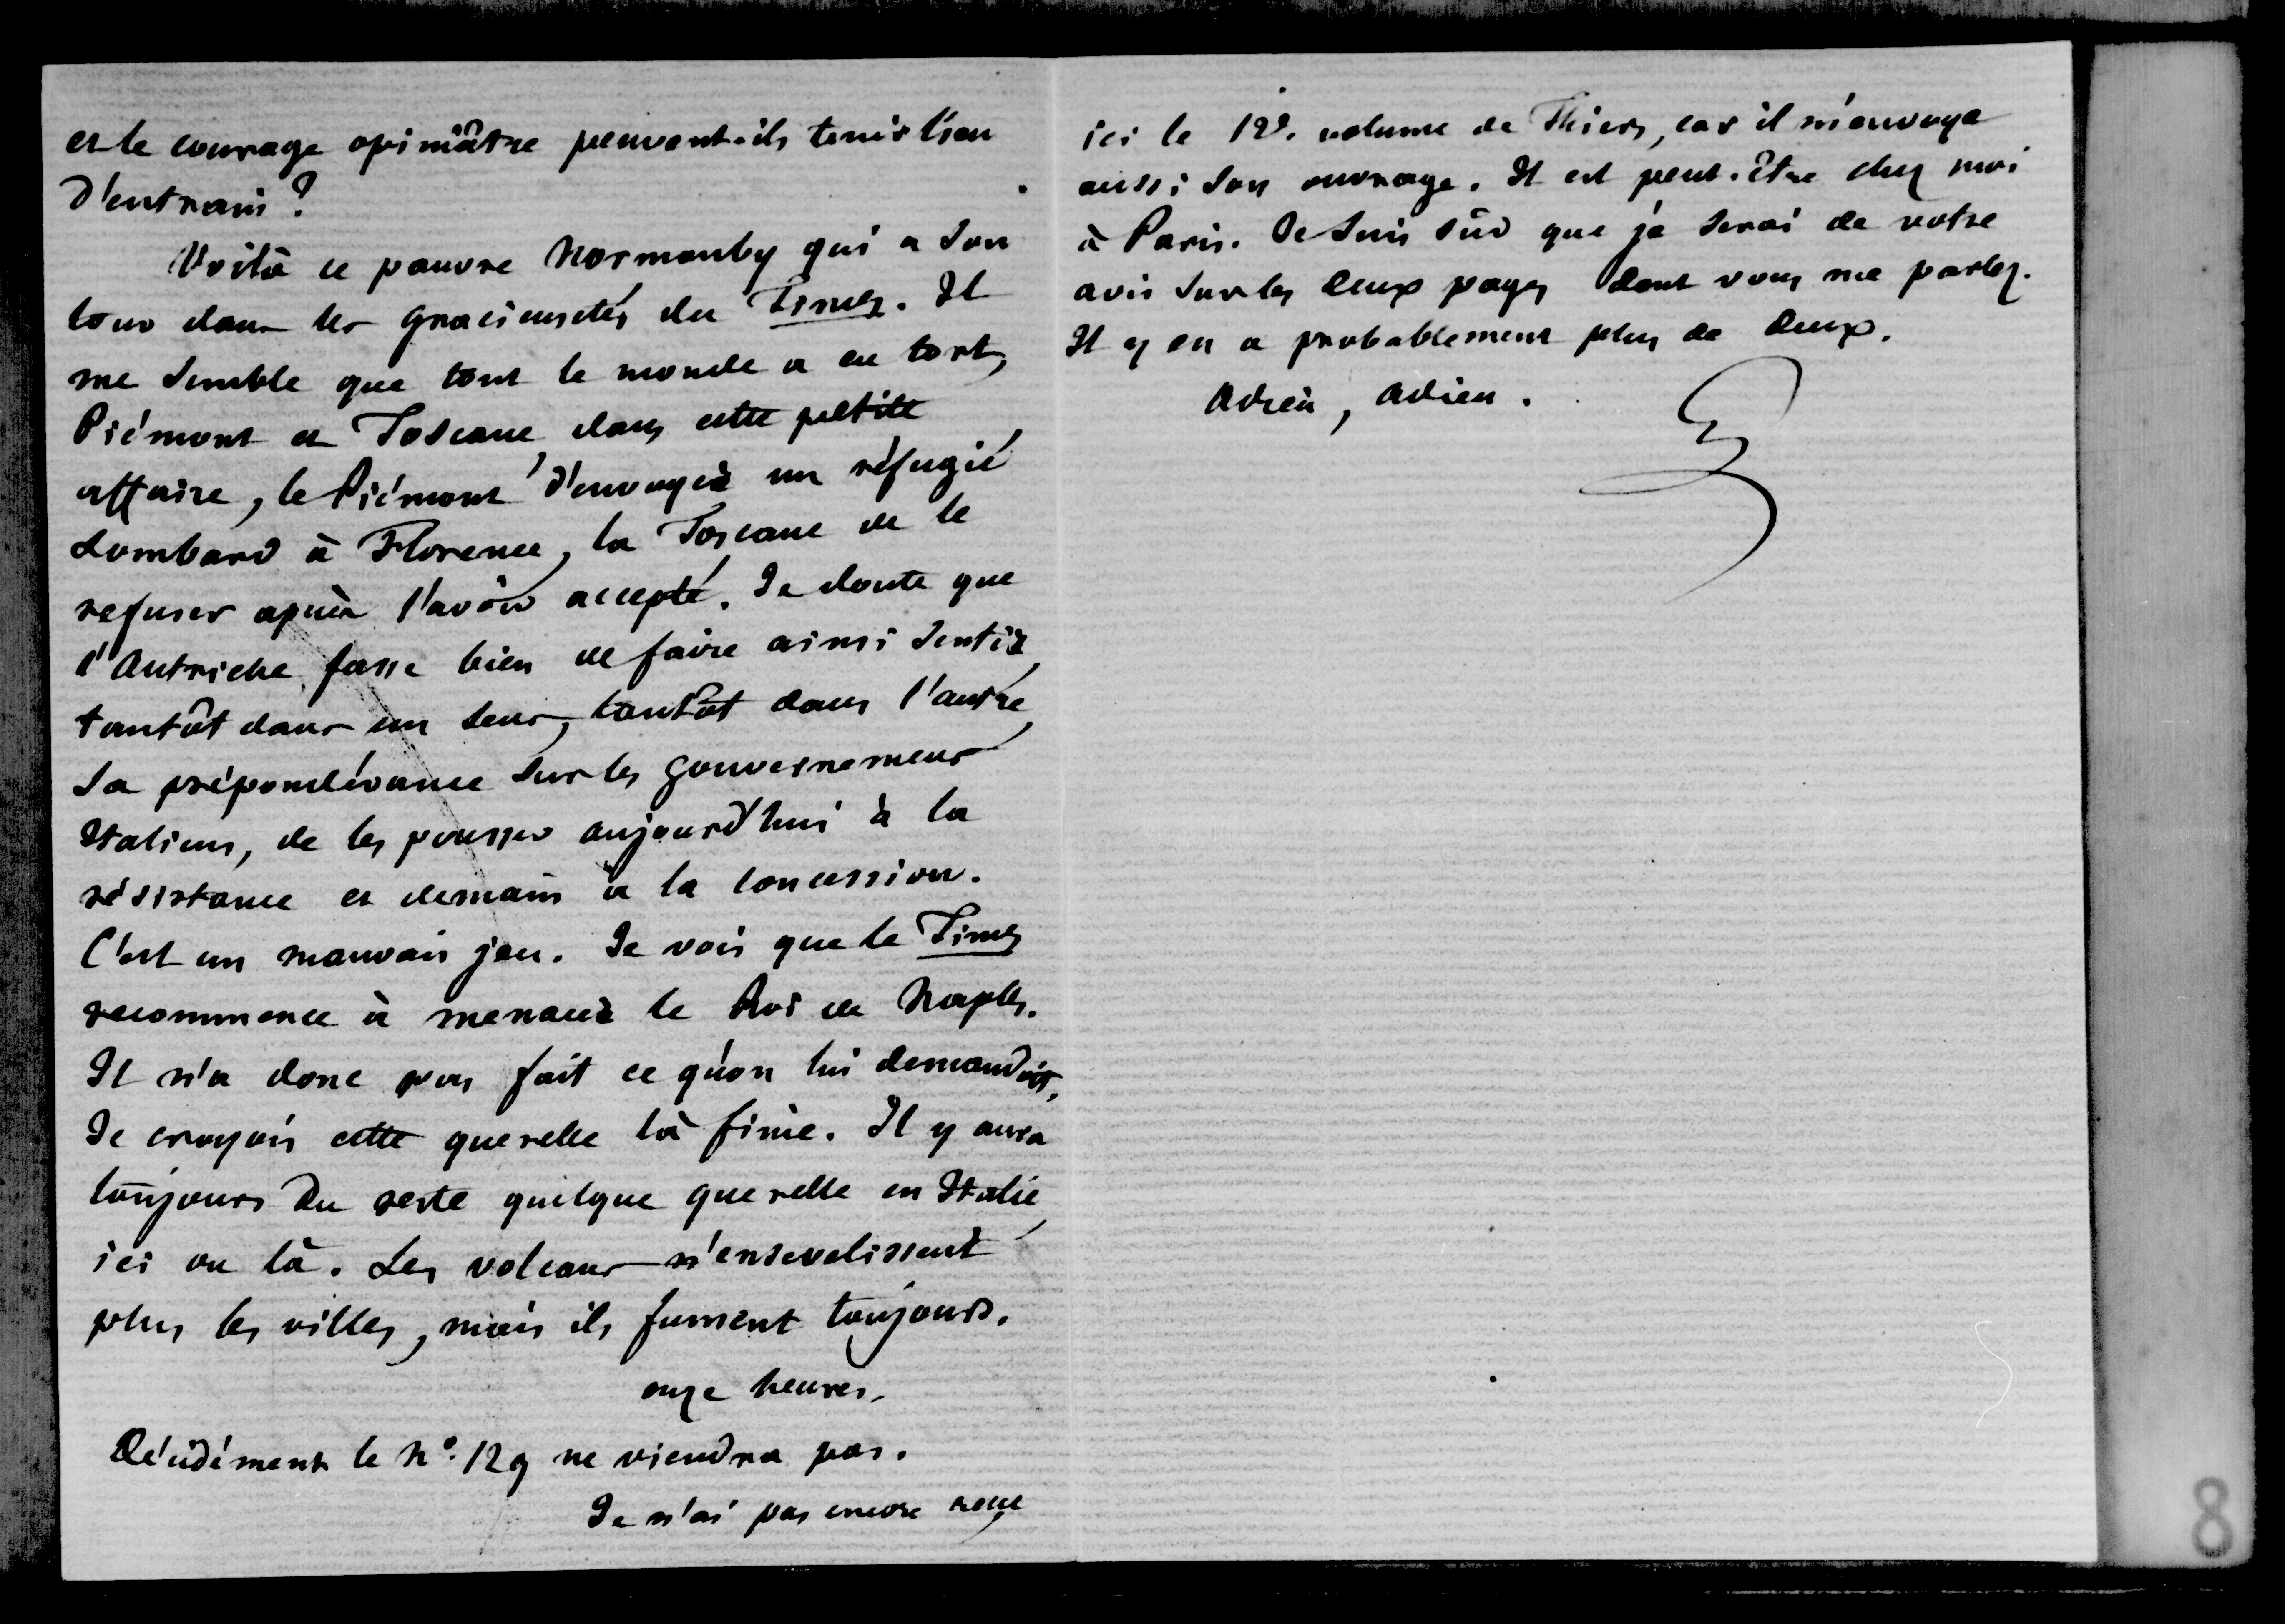 et le courage opiniâtre peuvent-ils tenir lieu
d'entrain ?
Voilà ce pauvre Normanby qui a son
tour dans les gracieusetés du Times. Il
me semble que tout le monde a eu tort,
Piémont et Toscane, dans cette petite
affaire, le Piémont d'envoyer un réfugié
Lombard à Florence, la Toscane de le
refuser après l'avoir accepté. Je doute que
l'Autriche fasse bien de faire ainsi sentir,
tantôt dans un sens, tantôt dans l'autre,
sa prépondérance sur les gouvernemens
Italiens, de les pousser aujourd'hui à la
résistance et demain à la concession.
C'est un mauvais jeu. Je vois que le Times
recommence à menacer le Roi de Naples.
Il n'a donc pas fait ce qu'on lui demandoit.
Je croyois cette querelle là finie. Il y aura
toujours du reste quelque querelle en Italie,
ici ou là. Les volcans n'ensevelissent
plus les villes, mais ils fument toujours.
onze heures.
Décidément le No. 129 ne viendra pas.
Je n'ai pas encore reçu
ici le 12e. volume de Thiers, car il m'envoye
aussi son ouvrage. Il est peut-être chez moi
à Paris. Je suis sûr que je serai de votre
avis sur les deux pages dont vous me parlez.
Il y en a probablement plus de deux.
Adieu, adieu.
8